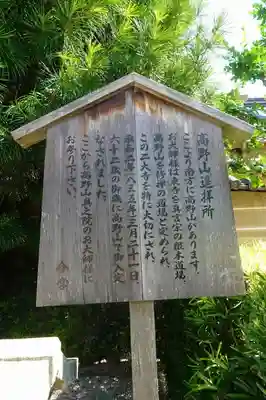 高野山遥拝所
ここより南方に高野山があります。
お大師様は東寺を真言宗の根本道場、
高野山を修禅の道場と定められ、
この二大寺を特に大切にされ、
承和二年（八三五年）三月二十一日、
六十二歳の御歳に高野山で御入定
なされました。
ここから高野山奥之院のお大師様に
お参り下さい。